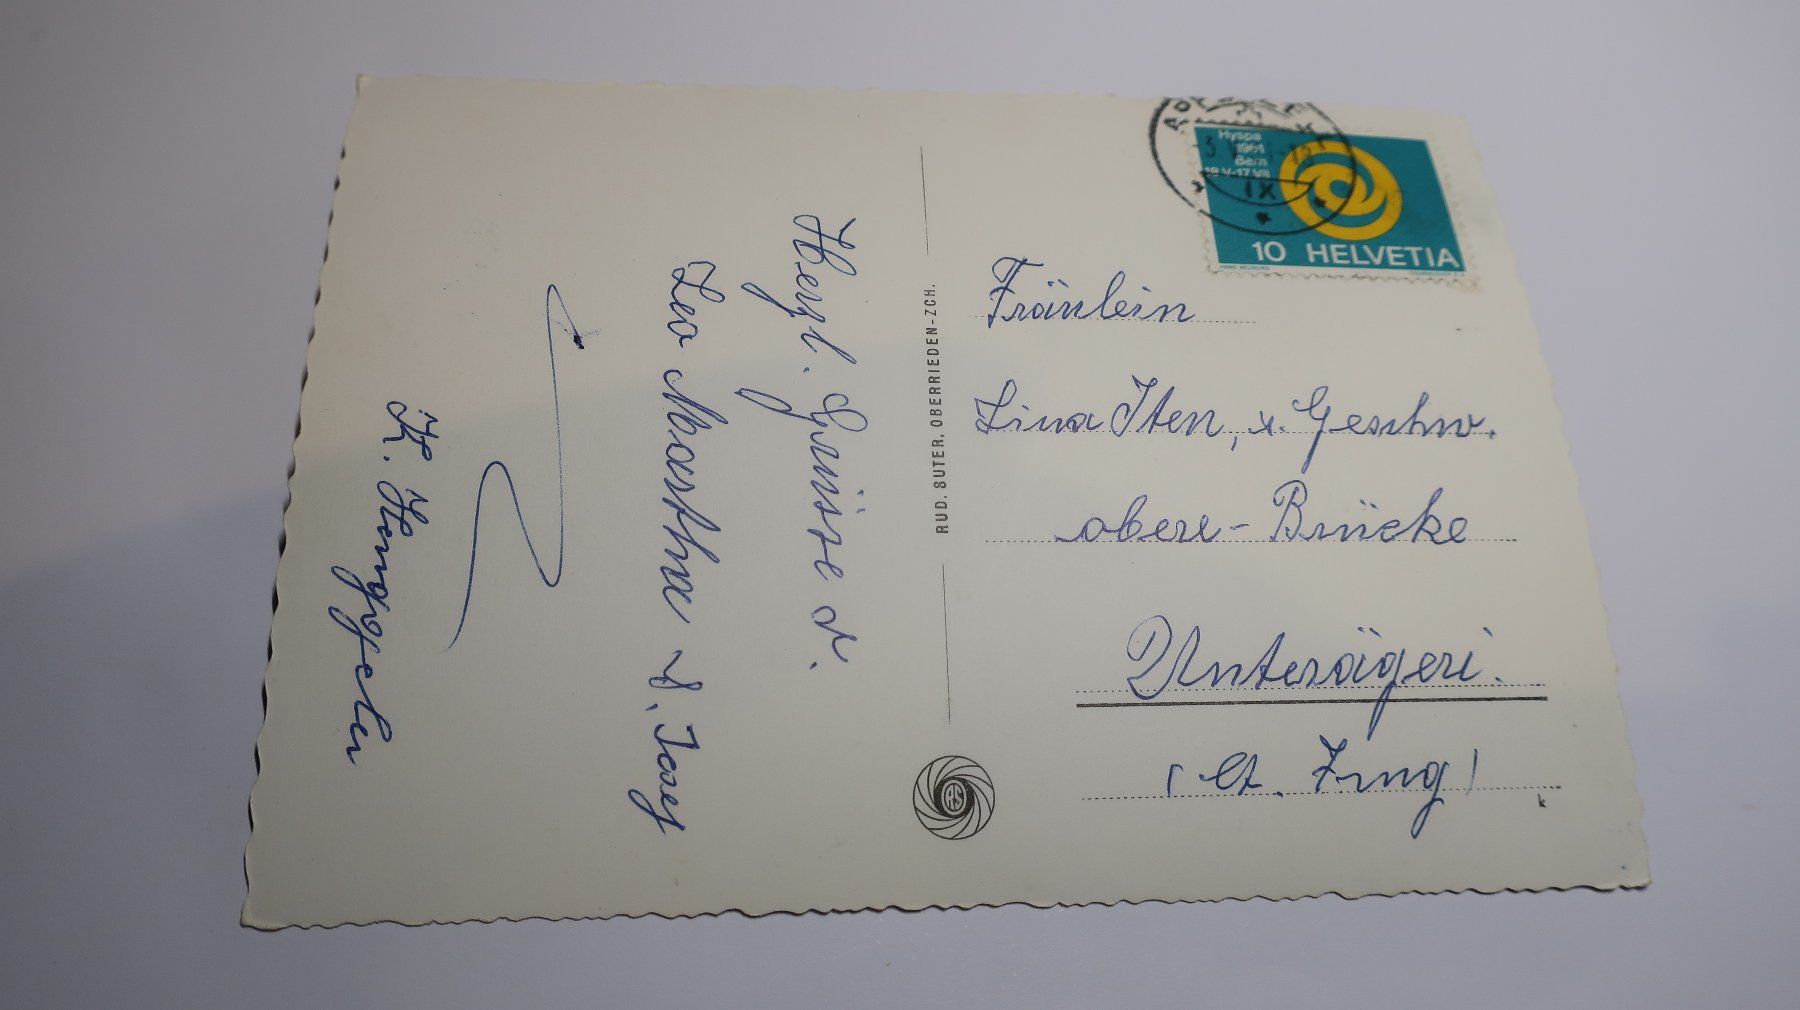 Herzl. Grüsse v.
Leo Martha u. Josef
K. Henggeler
RUD. SUTER, OBERRIEDEN-ZCH.
RS
Hyspa
1961
Bern
18.V.-17.VII
10 HELVETIA
-3.
IX
Fräulein
Lina Iten, u. Geschw.
obere-Brücke
Unterägeri.
(Ct. Zug)
k